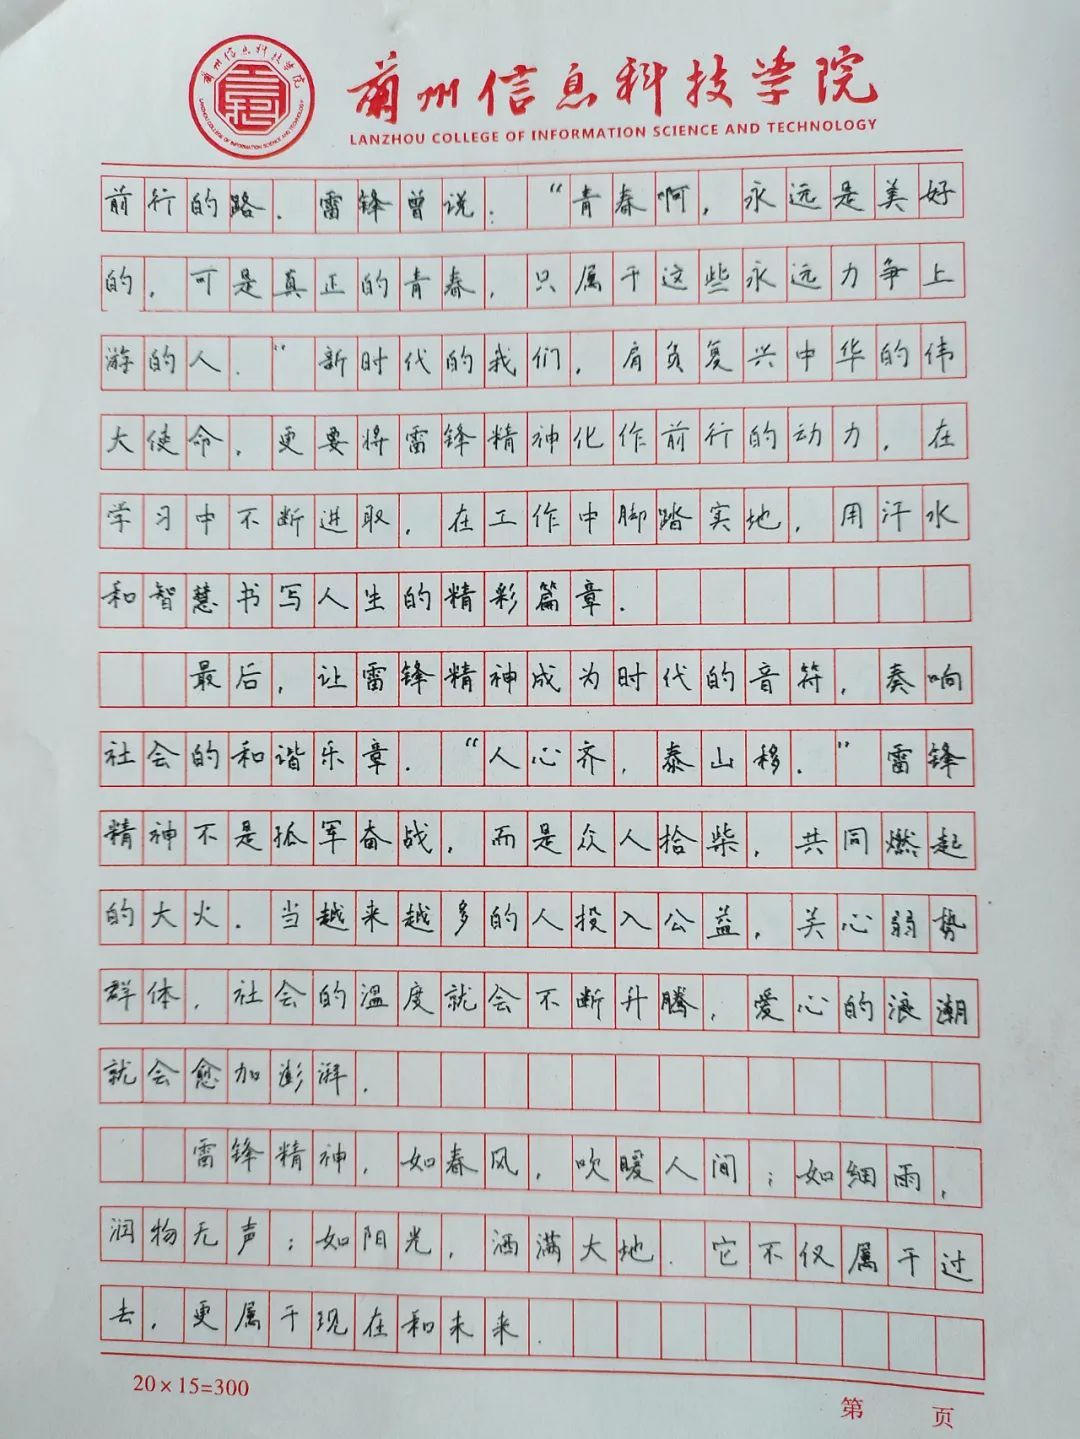 兰州信息科技学院
LANZHOU COLLEGE OF INFORMATION SCIENCE AND TECHNOLOGY
兰州信息科技学院
LANZHOU COLLEGE OF INFORMATION SCIENCE AND TECHNOLOGY
前行的路.雷锋曾说:“青春啊,永远是美好
的,可是真正的青春,只属于这些永远力争上
游的人.”新时代的我们,肩负复兴中华的伟
大使命,更要将雷锋精神化作前行的动力,在
学习中不断进取,在工作中脚踏实地,用汗水
和智慧书写人生的精彩篇章.
最后,让雷锋精神成为时代的音符,奏响
社会的和谐乐章.“人心齐,泰山移.”雷锋
精神不是孤军奋战,而是众人拾柴,共同燃起
的大火.当越来越多的人投入公益,关心弱势
群体,社会的温度就会不断升腾,爱心的浪潮
就会愈加澎湃.
雷锋精神,如春风,吹暖人间;如细雨,
润物无声;如阳光,洒满大地.它不仅属于过
去,更属于现在和未来.
20×15=300
第 页